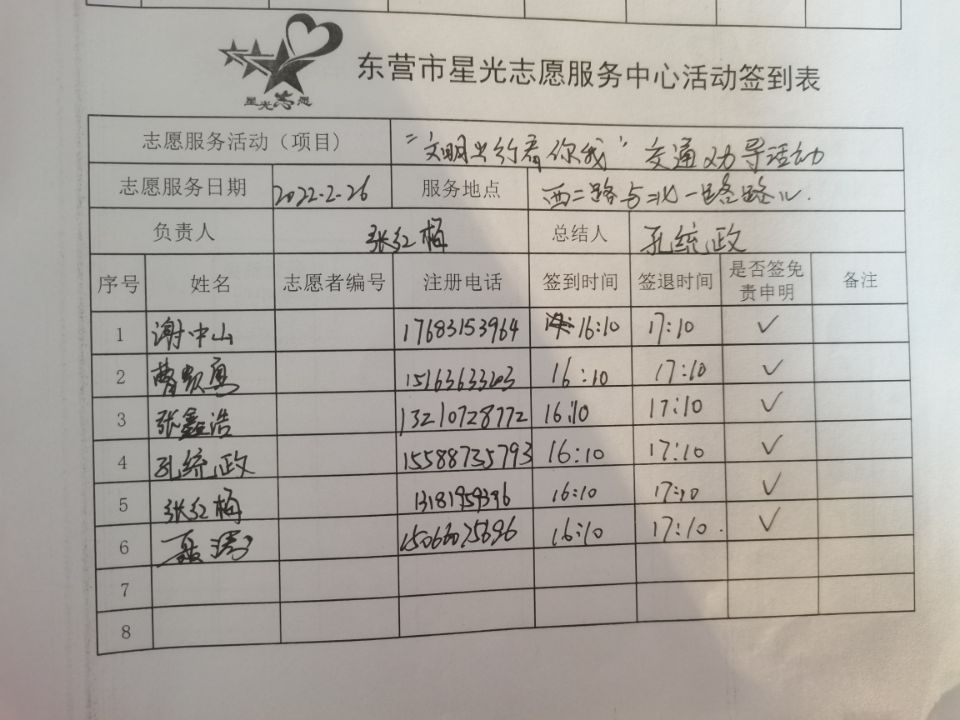 星光志愿
东营市星光志愿服务中心活动签到表
志愿服务活动（项目） "文明出行有你我"交通劝导活动
志愿服务日期 2022-2-26 服务地点 西二路与北一路路口.
负责人 张红梅 总结人 孔统政
序号 姓名 志愿者编号 注册电话 签到时间 签退时间 是否签免责申明 备注
1 谢中山 17683153964 16:10 17:10 ✓
2 曹 16:10 17:10 ✓
3 张鑫浩 13210728772 16:10 17:10 ✓
4 孔统政 15588735793 16:10 17:10 ✓
5 张红梅 16:10 17:10 ✓
6 聂涛 15066075696 16:10 17:10. ✓
7
8